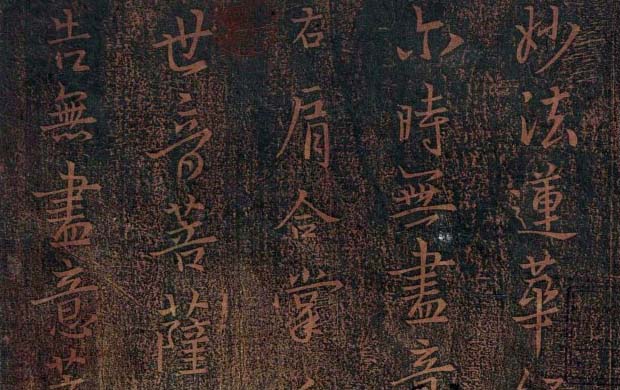 妙法蓮華
尔時無盡意
右肩合掌
世音菩薩
告無盡意菩